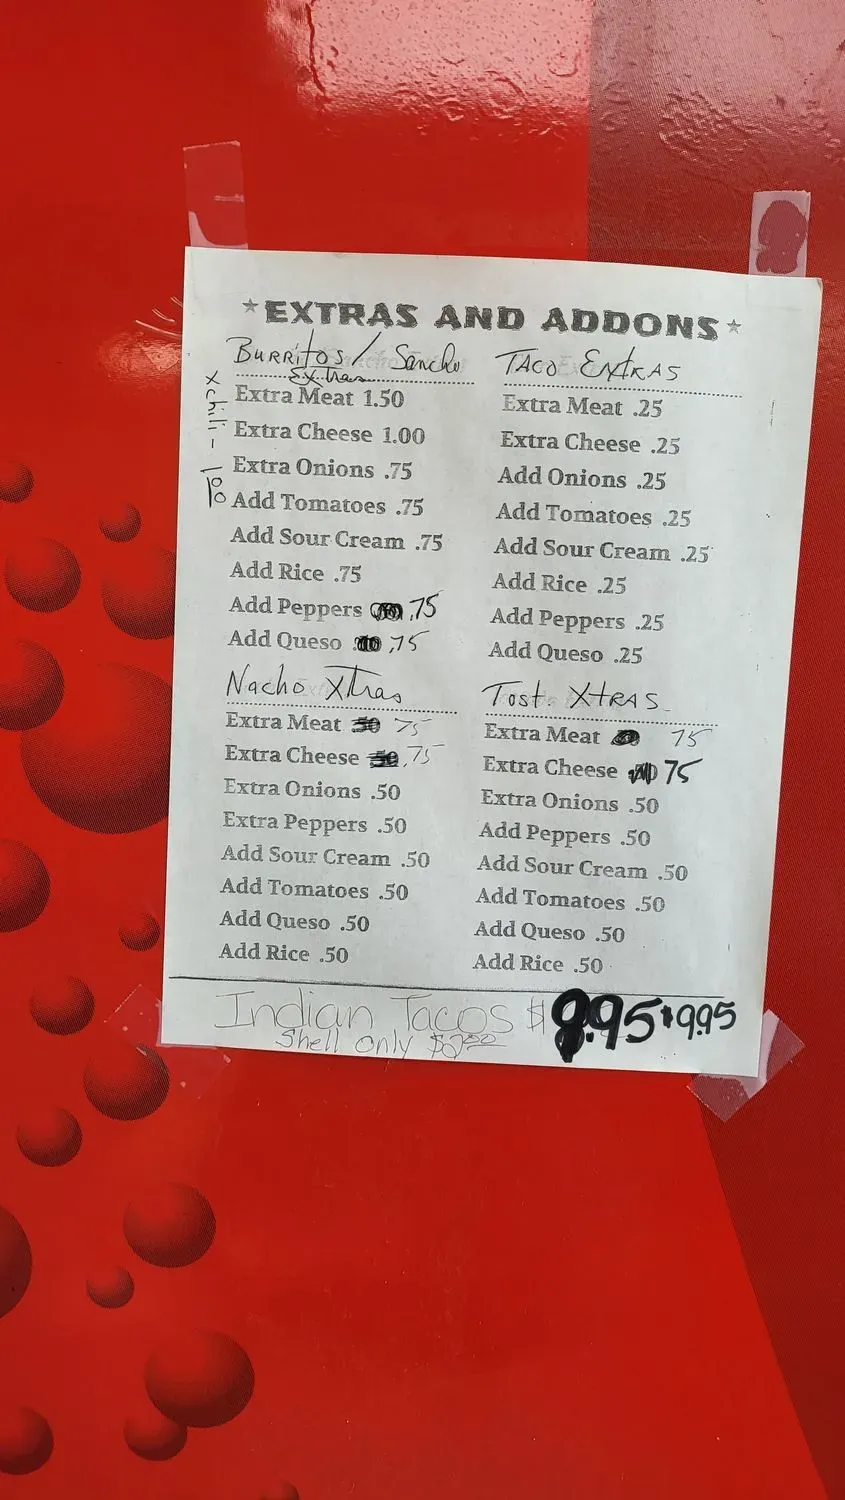 EXTRAS AND ADDONS
Burritos / Sancho
Extras
Extra Meat 1.50
Extra Cheese 1.00
Extra Onions .75
Add Tomatoes .75
Add Sour Cream .75
Add Rice .75
Add Peppers .75
Add Queso .75
TACO ExtRAS
Extra Meat .25
Extra Cheese .25
Add Onions .25
Add Tomatoes .25
Add Sour Cream .25
Add Rice .25
Add Peppers .25
Add Queso .25
Nacho Xtras
Extra Meat 75
Extra Cheese .75
Extra Onions .50
Extra Peppers .50
Add Sour Cream .50
Add Tomatoes .50
Add Queso .50
Add Rice .50
Tost. XtRAS
Extra Meat 75
Extra Cheese 75
Extra Onions .50
Add Peppers .50
Add Sour Cream .50
Add Tomatoes .50
Add Queso .50
Add Rice .50
Indian Tacos $9.95 $9.95
Shell Only $2.00